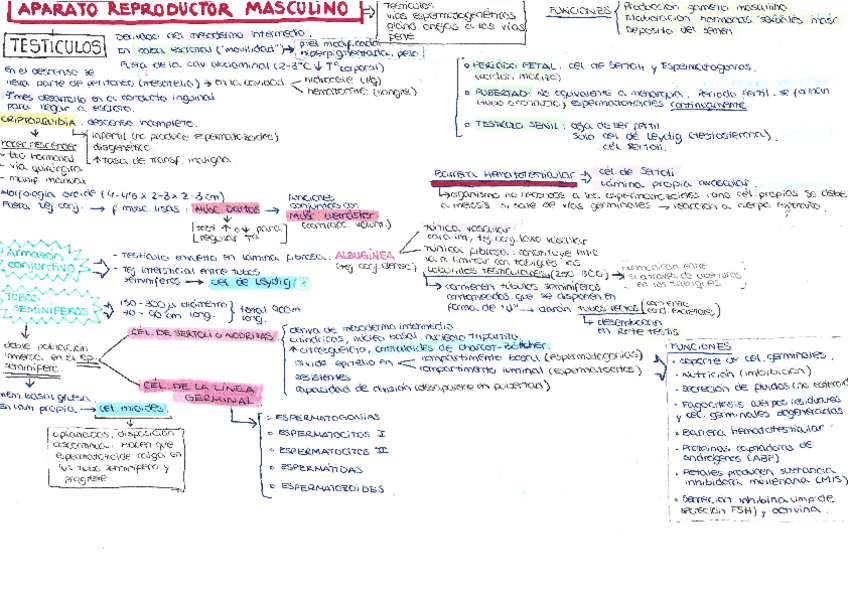 APARATO REPRODUCTOR MASCULINO
Testículos
vías espermatogenéticas
gland. anejas a las vías
pene
FUNCIONES
Producción gameto masculino
Elaboración hormonas sexuales masc
Depósito del semen
TESTÍCULOS
Derivados del mesodermo intermedio.
En bolsa escrotal ("movilidad") → piel modificada
hiperpigmentada, pelo
Fuera de la cav abdominal (2-3°C ↓ Tª corporal)
en el descenso se
lleva parte de peritoneo (mesotelio) → en la cavidad
hidrocele (liq)
hematocele (sangre)
desarrollo en el conducto inguinal
para llegar a escroto.
CRIPTORQUIDIA: descenso incompleto.
hacer descender
- tto hormonal
- vía quirúrgica
- manip manual
infértil (no produce espermatozoides)
disgenético
↑ tasa de transf. maligna
° PERÍODO FETAL: cél de Sertoli y Espermatogonias.
° PUBERTAD: No equivalente a menarquia. Período fértil. se forman
espermatozoides continuamente
° TESTÍCULO SENIL: deja de ser fértil
Solo cél de Leydig (testosterona).
cél. Sertoli.
Barrera Hematotesticular → cél de Sertoli
lámina propia avascular.
organismo no reconoce a los espermatozoides como cél propias se debe
a meiosis, si sale de vías germinales → reacción a cuerpo extraño.
Morfología ovoide (4-4'5 x 2-3 x 2-3cm)
Fuera tej conj. → f. musc. lisas: Musc Dartos → funciones
conjuntas con
Musc cremáster
(contracc. volunt.)
test ↑ o ↓ para
regular Tª
Armazón
conjuntivo
- Testículo envuelto en lámina fibrosa: ALBUGÍNEA
(tej conj. denso)
- Tej intersticial entre tubos
seminíferos → cél de Leydig
túnica vascular
tej conj. laxo vascular
túnica fibrosa: constituye hilio
va a limitar con tabiques las
lobulillos testiculares (250-300) →
comunican entre
sí a través de aberturas
en los tabiques
contienen túbulos seminíferos
contorneados que se disponen en
forma de "U" → darán tubos rectos
desembocan
en Rete testis
TUBOS
SEMINÍFEROS
150-300μ diámetro
40-90 cm long.
total 900m
long.
doble población
inmersa en el ep.
seminífero
CÉL. DE SERTOLI O NODRIZAS
deriva de mesodermo intermedio
cilíndricas, núcleo basal, nucleolo tripartito
↑ citoesqueleto, cristaloides de Charcot-Böttcher.
divide epitelio en
compartimento basal (espermatogonias)
compartimento luminal (espermatocitos)
resistentes
capacidad de división (desaparece en pubertad)
CÉL. DE LA LÍNEA
GERMINAL
mem. basal gruesa
en lam propia → cél. mioides.
aplanadas, disposición
discontinua. Hacen que
espermatozoide caiga en
luz tubo seminífero y
progrese
° ESPERMATOGONIAS
° ESPERMATOCITOS I
° ESPERMATOCITOS II
° ESPERMÁTIDAS
° ESPERMATOZOIDES
FUNCIONES
• soporte de cél. germinales.
• Nutrición (imbibición)
• Secreción de fluidos
• Fagocitosis cuerpos residuales
y cél germinales degeneradas
• Barrera hematotesticular
• Proteínas captadoras de
andrógenos (ABP)
• Fetales producen sustancia
inhibidora mülleriana (MIS)
• Secreción inhibina (impide
secreción FSH) y activina.